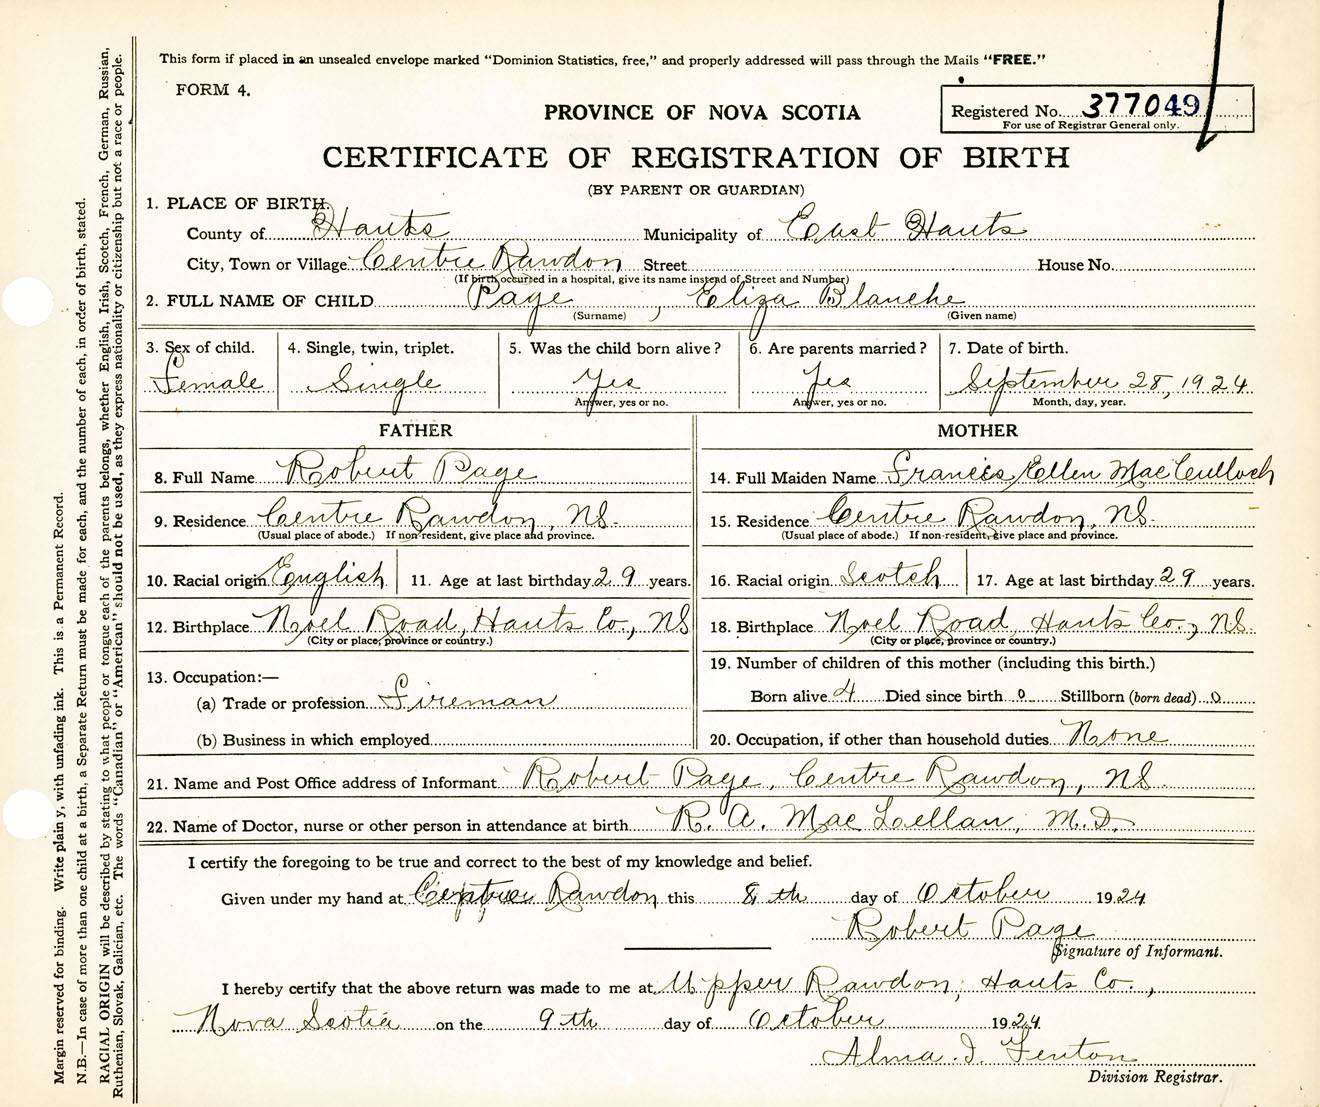 This form if placed in an unsealed envelope marked "Dominion Statistics, free," and properly addressed will pass through the Mails "FREE."
FORM 4.
PROVINCE OF NOVA SCOTIA
Registered No. 377049
For use of Registrar General only.
CERTIFICATE OF REGISTRATION OF BIRTH
(BY PARENT OR GUARDIAN)
1. PLACE OF BIRTH.
County of Hants Municipality of East Hants
City, Town or Village Centre Rawdon Street House No.
(If birth occurred in a hospital, give its name instead of Street and Number)
2. FULL NAME OF CHILD Page, Eliza Blanche
(Surname) (Given name)
3. Sex of child. 4. Single, twin, triplet. 5. Was the child born alive? 6. Are parents married? 7. Date of birth.
Female Single Yes Yes September 28, 1924
Answer, yes or no. Answer, yes or no. Month, day, year.
FATHER MOTHER
8. Full Name Robert Page 14. Full Maiden Name Frances Ellen MacCulloch
9. Residence Centre Rawdon, NS. 15. Residence Centre Rawdon, NS.
(Usual place of abode.) If non-resident, give place and province. (Usual place of abode.) If non-resident, give place and province.
10. Racial origin English 11. Age at last birthday 29 years. 16. Racial origin Scotch 17. Age at last birthday 29 years.
12. Birthplace Noel Road, Hants Co., NS 18. Birthplace Noel Road, Hants Co., NS.
(City or place, province or country.) (City or place, province or country.)
13. Occupation:— 19. Number of children of this mother (including this birth.)
(a) Trade or profession Fireman Born alive 4 Died since birth 0 Stillborn (born dead) 0
(b) Business in which employed 20. Occupation, if other than household duties None
21. Name and Post Office address of Informant Robert Page, Centre Rawdon, NS.
22. Name of Doctor, nurse or other person in attendance at birth R. A. MacLellan, M.D.
I certify the foregoing to be true and correct to the best of my knowledge and belief.
Given under my hand at Centre Rawdon this 8th day of October 1924
Robert Page
Signature of Informant.
I hereby certify that the above return was made to me at Upper Rawdon, Hants Co.,
Nova Scotia on the 9th day of October 1924
Alma I. Fenton
Division Registrar.
Margin reserved for binding. Write plain y, with unfading ink. This is a Permanent Record.
N.B.—In case of more than one child at a birth, a Separate Return must be made for each, and the number of each, in order of birth, stated.
RACIAL ORIGIN will be described by stating to what people or tongue each of the parents belongs, whether English, Irish, Scotch, French, German, Russian,
Ruthenian, Slovak, Galician, etc. The words "Canadian" or "American" should not be used, as they express nationality or citizenship but not a race or people.